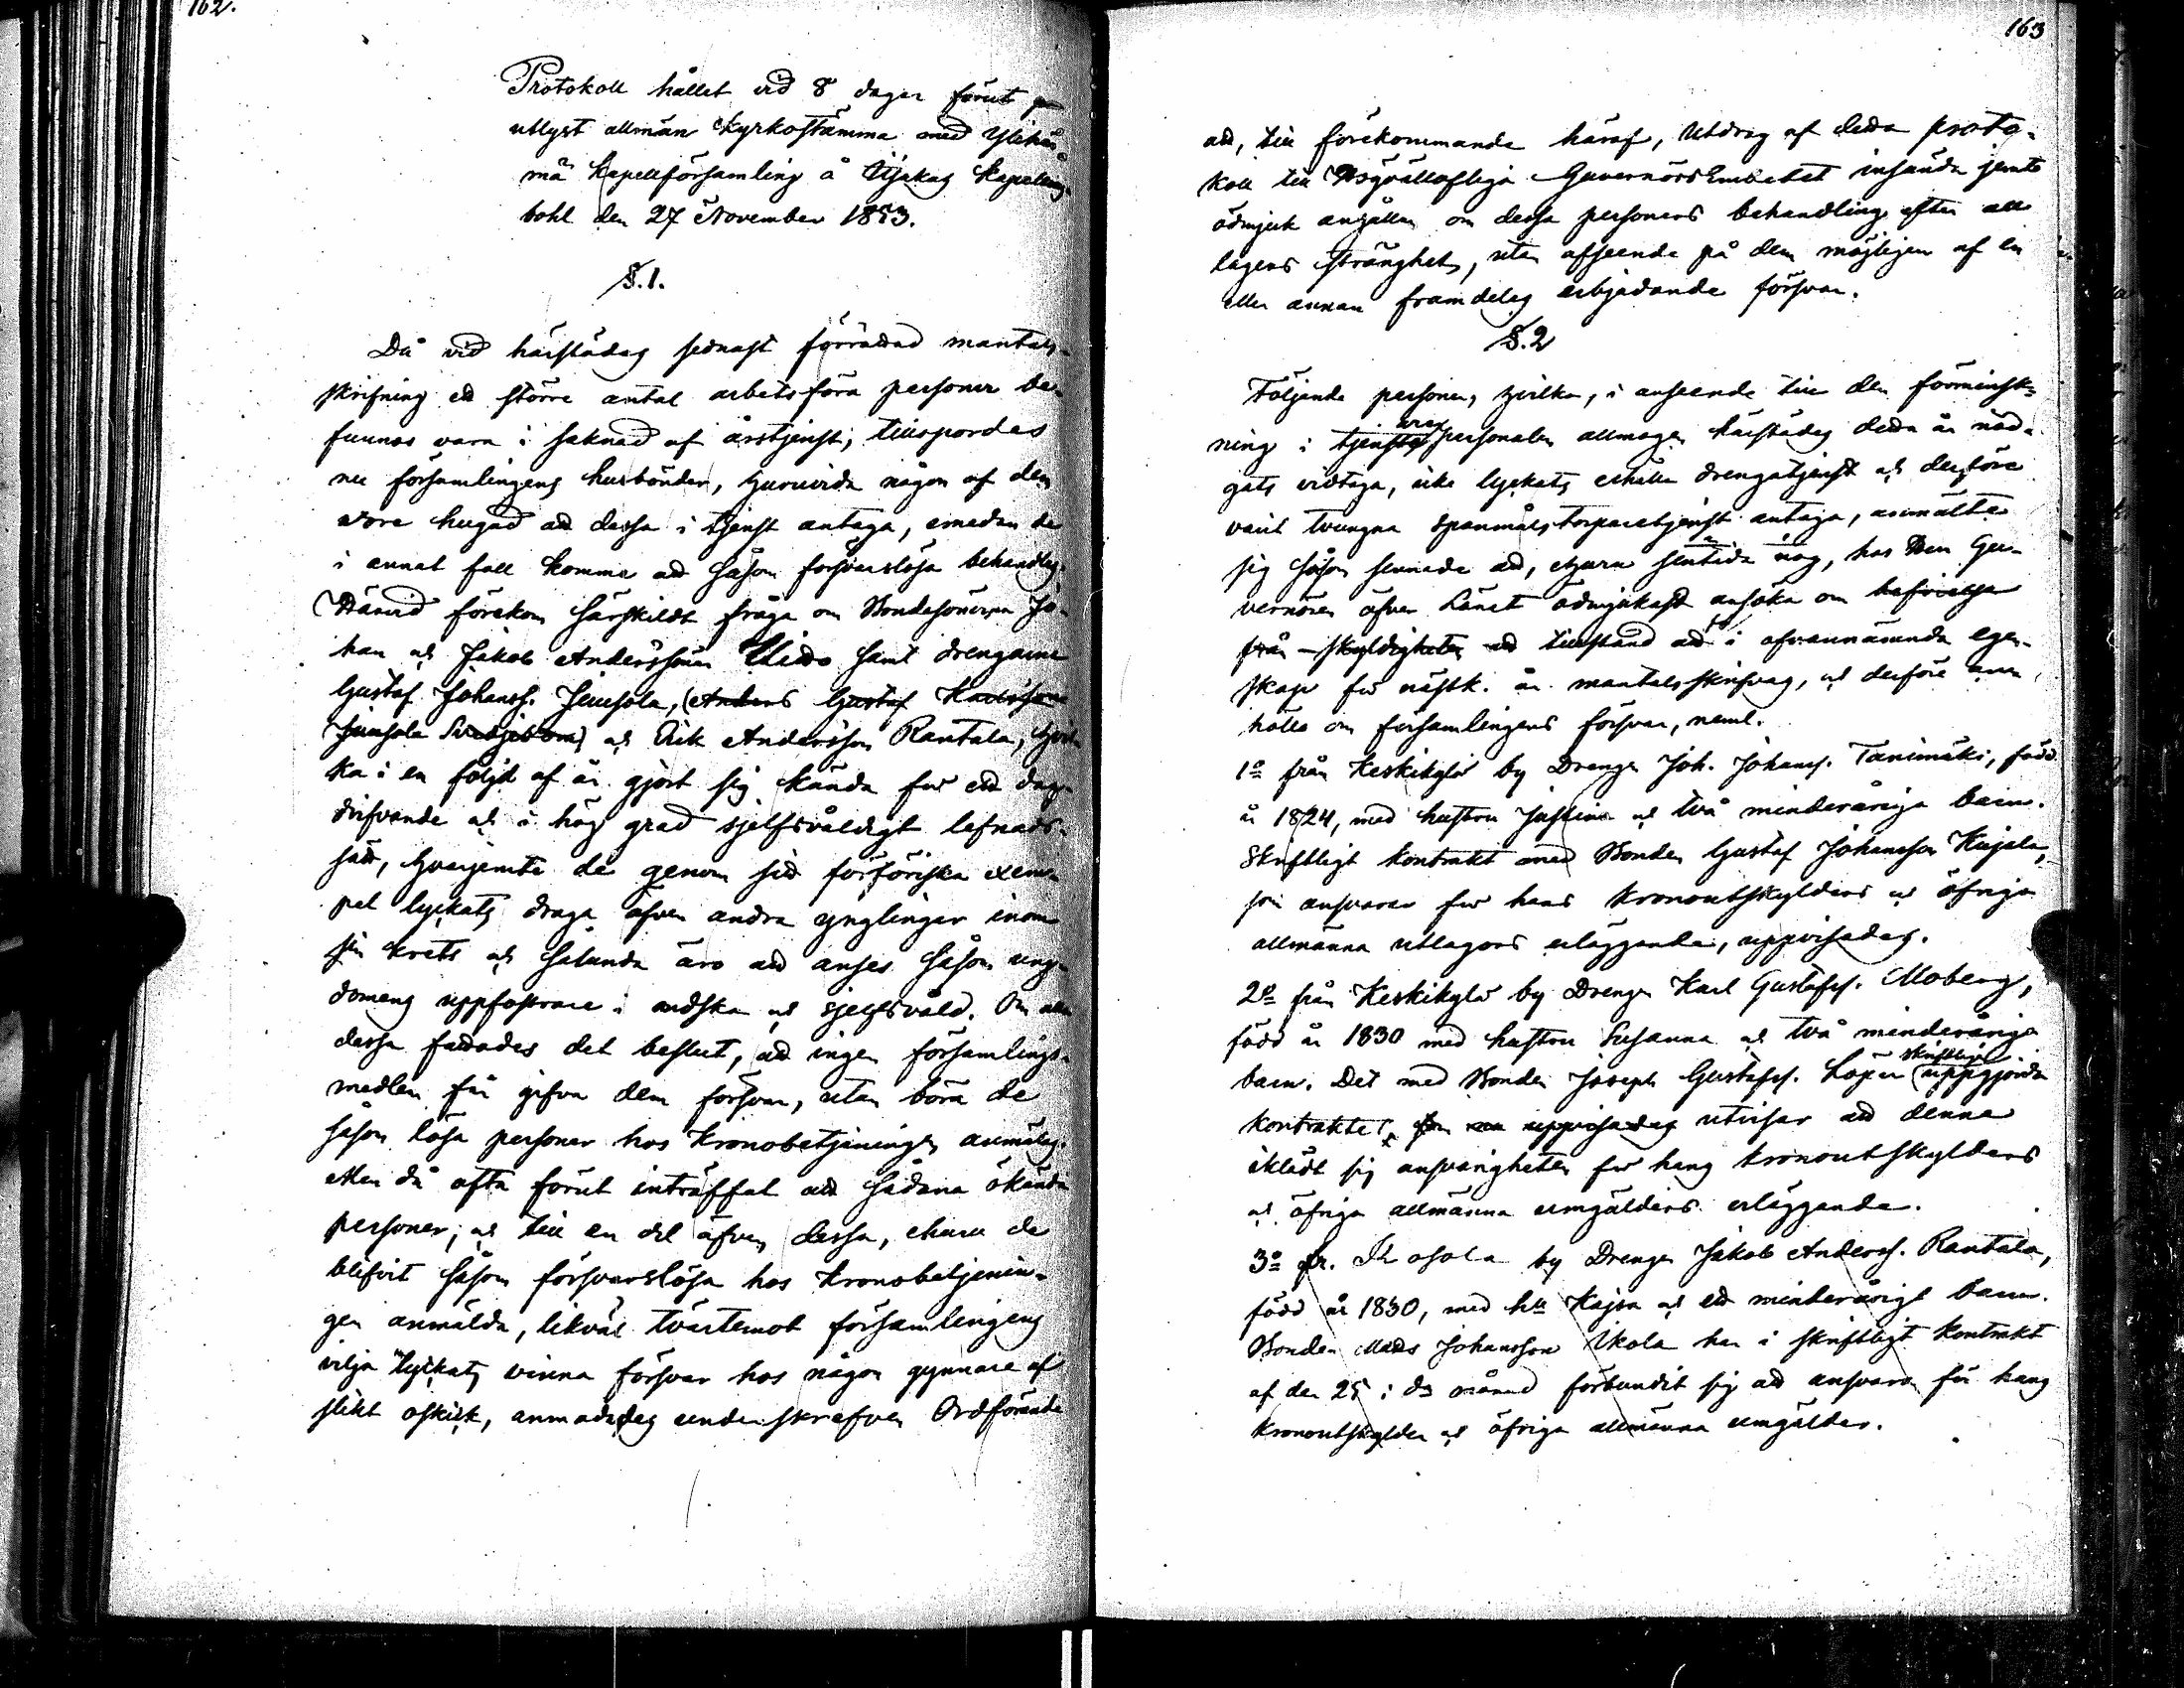 162.
Protokoll hållet vid 8 dagar förut på-
utlyst allmän Kyrkostämma med Ylihär-
mä Kapellförsamling å Kapellans-
bohl den 27 November 1853.
§.1.
Då vid härstädes sednast förrättad mantals-
skrifning ett större antal arbetsföra personer be-
funnos vara i saknad af årstjenst, tillspordes
nu församlingens husbönder, huruvida någon af dem
vore hugad att dessa i tjenst antaga, emedan de
i annat fall komma att såsom försvarslösa behandlas.
Härvid förekom särskildt fråga om Bondesönerna Jo-
han och Jakob Anderssöner samt drengarne
Gustaf Johanss. Jussola, (Anders Gustaf Karlsson
Jussola) och Erik Andersson Rantala, hvil-
ka i en följd af år gjort sig kända för ett dag-
drifvande och i hög grad sjelfsvåldigt lefnads-
sätt, hvarjemte de genom sitt förföriska exem-
pel lyckats draga äfven andra ynglingar inom
sin krets och salunda äro att anses såsom ung-
domens uppfostrare i och sjelfsvåld. Om alla
dessa fattades det beslut, att ingen församlings-
medlem får gifva dem försvar, utan böra de
såsom lösa personer hos Kronobetjeningen anmälas.
Men då ofta förut inträffat att sådana okända
personer, och till en del äfven dessa, ehuru de
blifvit såsom försvarslösa hos kronobetjenin-
gen anmälda, likväl tvärtemot församlingens
vilja lyckats vinna försvar hos någon gynnare af
slikt oskick, anmodades underskrefven Ordförande
163
att, till förekommande häraf, utdrag af detta proto-
koll till Högvällofliga GuvernörsEmbetet insända jemte
ödmjuk anhållan om dessa personers behandling efter all
lagens stränghet, utan afseende på dem möjligen af en
eller annan framdeles erbjudande försvar.
§.2
Följande personer, hvilka, i anseende till den förminsk-
ning i tjenstepersonalen allmogen härstädes detta år nöd-
gats vidtaga, icke lyckats erhålla drengatjenst och derföre
varit tvungna spanmålstorparetjenst antaga, anmälte
sig såsom sinnade att, ehuru sentida nog, hos Herr Gu-
vernören öfver Länet ödmjukast ansöka om befrielse
från skyldigheten att tillstånd att i ofvannämnda egen-
skap för nästk. år mantalsskrifvas, och derföre an-
hålla om församlingens försvar, neml.
1o från Keskikylä by Drengen Joh. Johanss. Tanimäki, född
år 1824, med hustru Justina och två minderåriga barn.
Skriftligt kontrakt med Bonden Gustaf Johansson Kujala,
som ansvarar för hans kronoutskylders och öfriga
allmänna utlagors erläggande, uppvisades.
2o från Keskikylä by Drengen Karl Gustafss. Moberg,
född år 1830 med hustru Susanna och två minderåriga
barn. Det med Bonden Joseph Gustafss. Löper skriftligen uppgjorda
kontraktet, som nu uppvisades utvisar att denne
iklädt sig ansvarigheten för hans kronoutskylders
och öfriga allmänna umgälders erläggande.
3o fr. Kosola by Drengen Jakob Anderss. Rantala,
född år 1830, med hu Kajsa och ett minderårigt barn.
Bonden Matts Johansson Ikola har i skriftligt kontrakt
af den 25 i ds månad förbundit sig att ansvara för hans
kronoutskylder och öfriga allmänna umgälder.